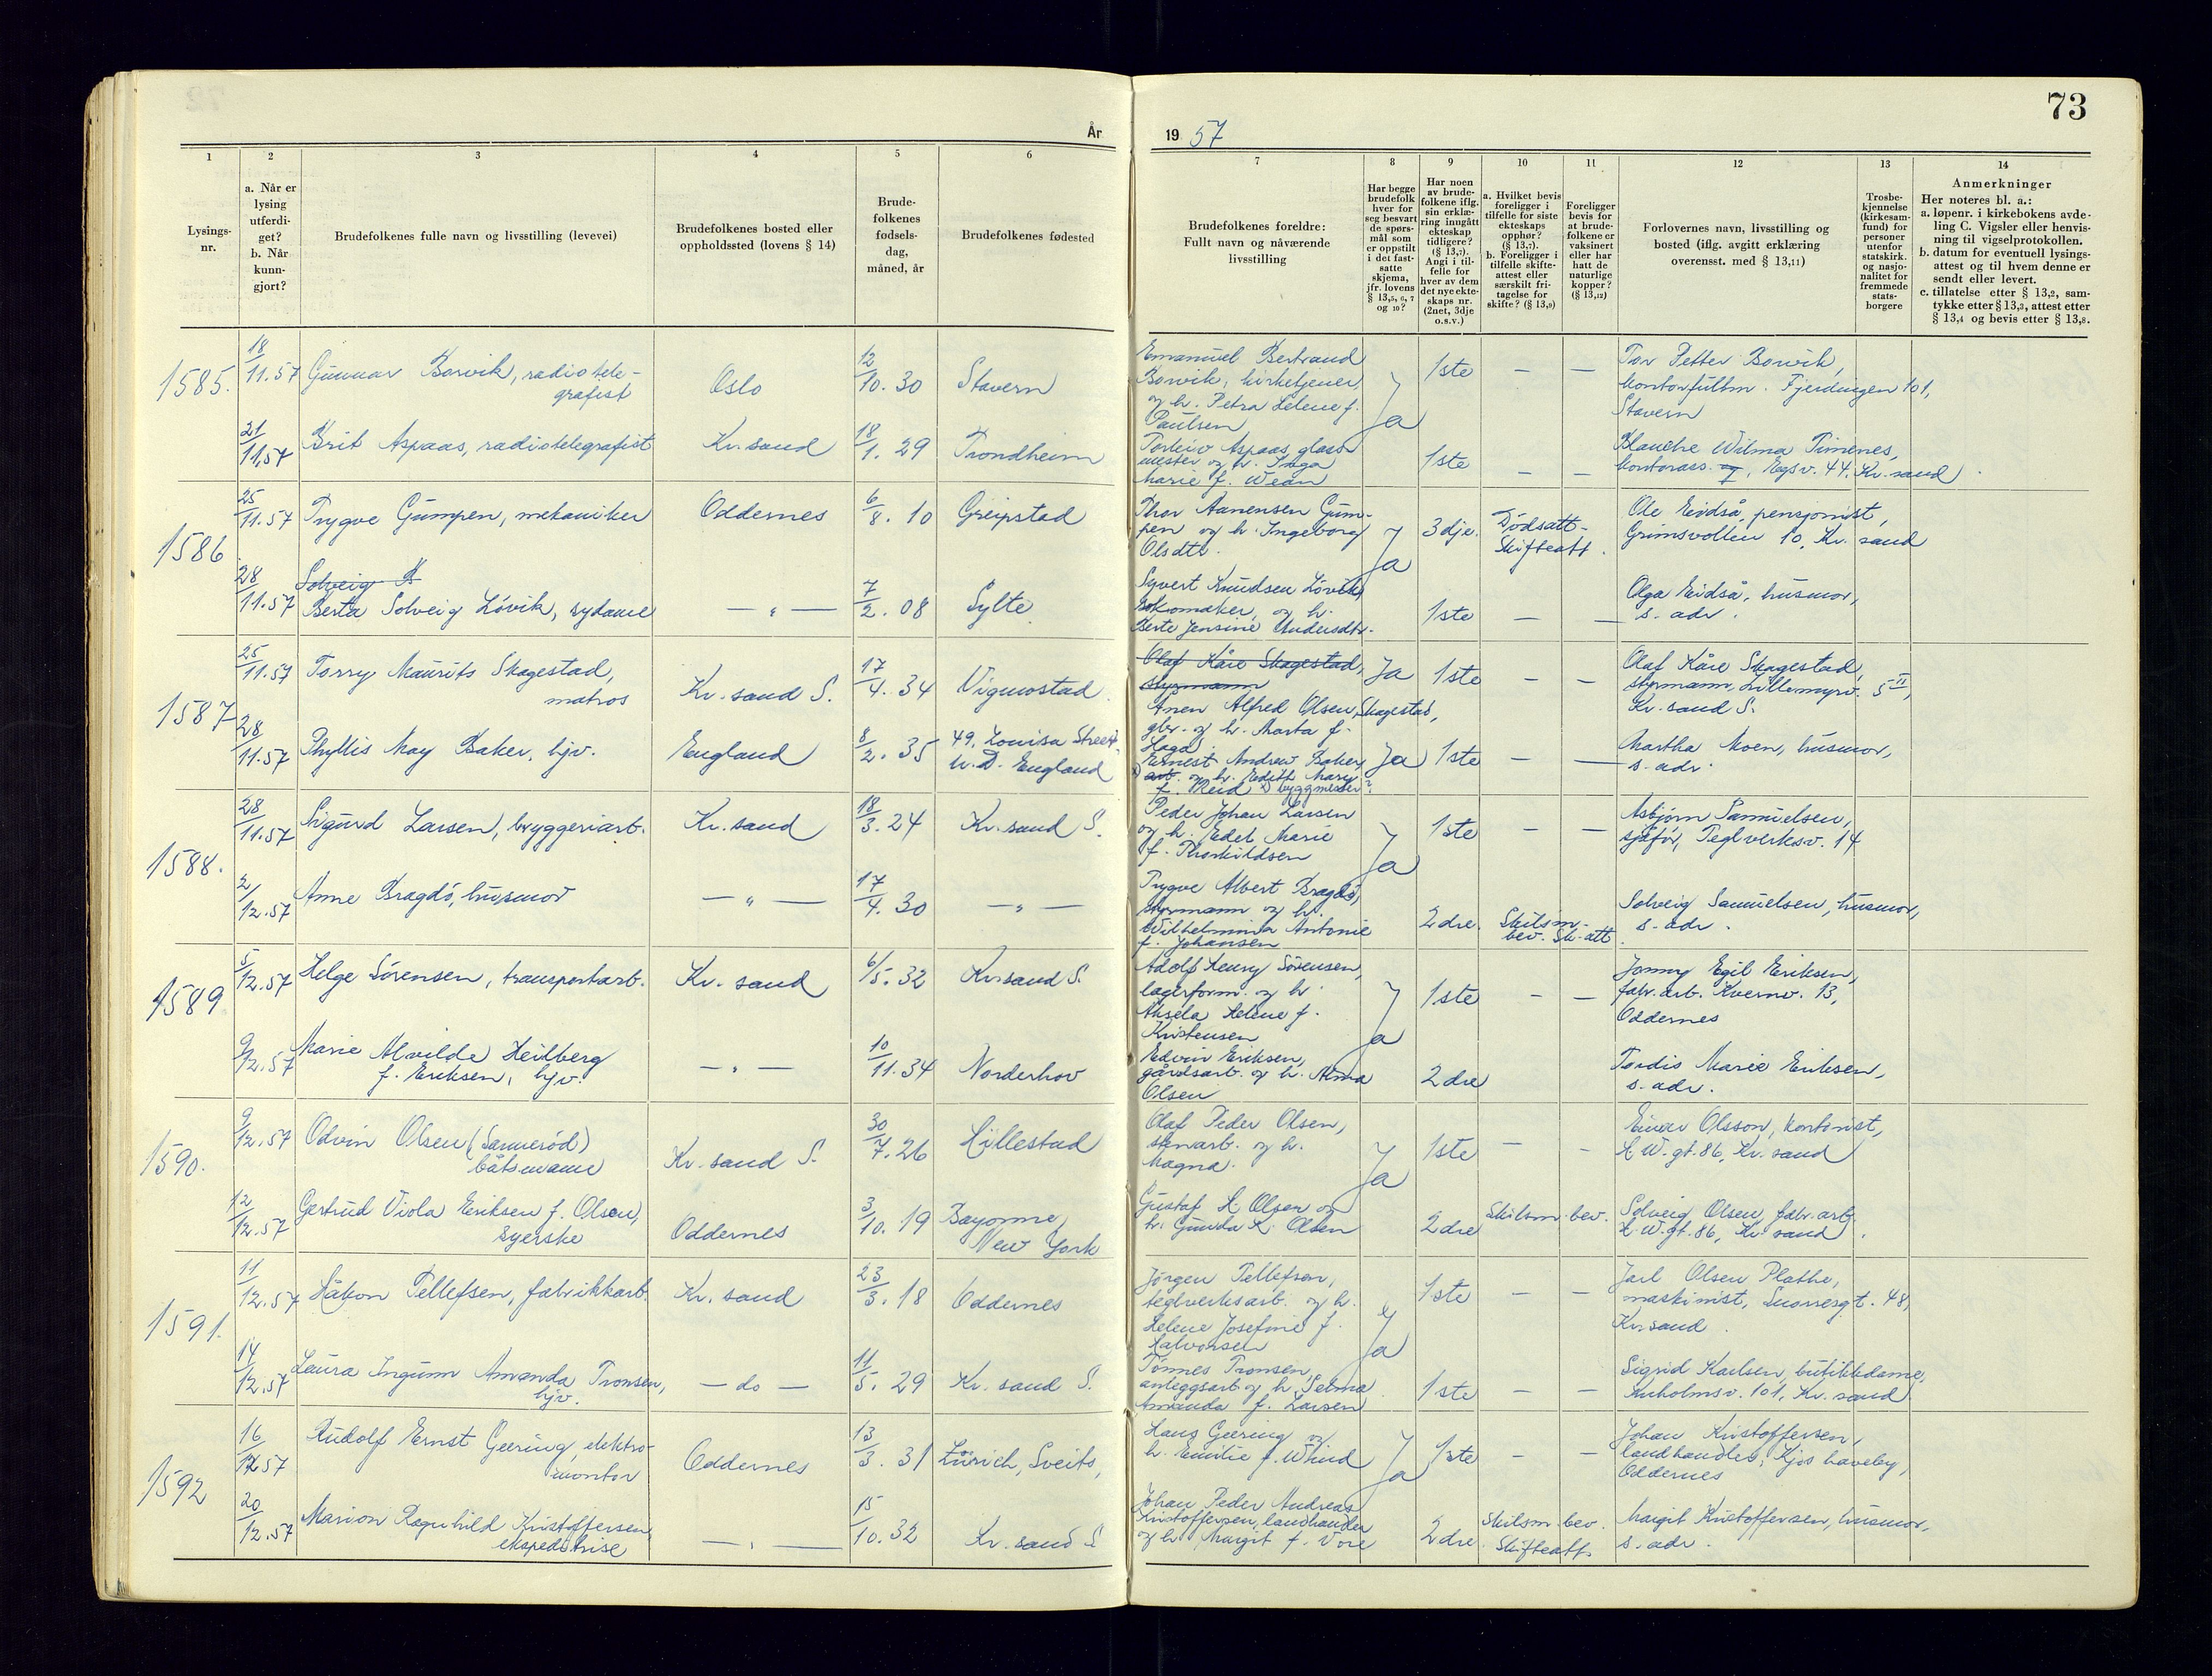 73
År
19 57
1
2
3
4
5
6
7
8
9
10
11
12
13
14
Lysings-
nr.
a. Når er
lysing
utferdi-
get?
b. Når
kunn-
gjort?
Brudefolkenes fulle navn og livsstilling (levevei)
Brudefolkenes bosted eller
oppholdssted (lovens § 14)
Brude-
folkenes
fødsels-
dag,
måned, år
Brudefolkenes fødested
Brudefolkenes foreldre:
Fullt navn og nåværende
livsstilling
Har begge
brudefolk
hver for
seg besvart
de spørs-
mål som
er oppstilt
i det fast-
satte
skjema,
jfr. lovens
§ 13,5, 6, 7
og 10?
Har noen
av brude-
folkene iflg.
sin erklæ-
ring inngått
ekteskap
tidligere?
(§ 13,7).
Angi i til-
felle for
hver av dem
det nye ekte-
skaps nr.
(2net, 3dje
o.s.v.)
a. Hvilket bevis
foreligger i
tilfelle for siste
ekteskaps
opphør?
(§ 13,7).
b. Foreligger i
tilfelle skifte-
attest eller
særskilt fri-
tagelse for
skifte? (§ 13,9)
Foreligger
bevis for
at brude-
folkene er
vaksinert
eller har
hatt de
naturlige
kopper?
(§ 13,12)
Forlovernes navn, livsstilling og
bosted (iflg. avgitt erklæring
overensst. med § 13,11)
Trosbe-
kjennelse
(kirkesam-
fund) for
personer
utenfor
statskirk.
og nasjo-
nalitet for
fremmede
stats-
borgere
Anmerkninger
Her noteres bl. a.:
a. løpenr. i kirkebokens avde-
ling C. Vigsler eller henvis-
ning til vigselprotokollen.
b. datum for eventuell lysings-
attest og til hvem denne er
sendt eller levert.
c. tillatelse etter § 13,2, sam-
tykke etter § 13,3, attest etter
§ 13,4 og bevis etter § 13,8.
1585.
18/11.57 Gunnar Borvik, radiotele-
grafist
Oslo
12/10.30
Stavern
Emanuel Bertrand
Borvik, kirketjener,
og h. Petra Helene f.
Paulsen
Ja
1ste
—
—
Tor Petter Borvik,
kontorfullm. Fjerdingen 101,
Stavern
21/11.57 Brit Aspaas, radiotelegrafist
Kr.sand
18/1.29
Trondheim
Torleiv Aspaas, glass-
mester og h. Inga
Marie f. Wean
1ste
—
—
Blanche Wilma Timenes,
kontorass. Egsv. 44, Kr.sand
1586.
25/11.57 Trygve Gumpen, mekaniker
Oddernes
6/8.10
Greipstad
Thor Aanensen Gum-
pen og h. Ingeborg
Olsdtr.
Ja
3dje.
Dødsatt-
Skifteatt.
Ole Eidså, pensjonist,
Grimsvollen 10, Kr. sand
28/11.57 Solveig B
Berta Solveig Lövik, sydame
— " —
7/2.08
Sylte
Syvert Knudsen Lövik,
skomaker, og h.
Berte Jensine Andersdtr.
1ste
—
—
Olga Eidså, husmor,
s. adr.
1587
25/11.57 Torry Maurits Skagestad,
matros
Kr. sand S.
17/4.34
Vigmostad
Olaf Kåre Skagestad,
styrmann
Anen Alfred Olsen Skagestad,
gbr. og h. Marta f.
Haga
Ja
1ste
—
—
Olaf Kåre Skagestad,
styrmann, Lillemyrv. 5 II,
Kr. sand S.
28/11.57 Phyllis May Baker, hjv.
England
8/2.35
49, Louisa Street
W.D. England
Ernest Andrew Baker
arb. og h. Edith Mary
f. Reid byggmester
Ja
1ste
—
—
Martha Moen, husmor,
s. adr.
1588.
28/11.57 Sigurd Larsen, bryggeriarb.
Kr. sand
18/3.24
Kr. sand S.
Peder Johan Larsen
og h. Edel Marie
f. Thorkildsen
Ja
1ste
—
—
Asbjørn Samuelsen,
sjåfør, Teglverksv. 14
2/12.57 Anne Bragdö, husmor
— " —
17/4.30
— " —
Trygve Albert Bragdö,
styrmann og h.
Wilhelmina Antonie
f. Johansen
2dre.
Skilsm.-
bev. Sk-att.
Solveig Samuelsen, husmor,
s. adr.
1589
5/12.57 Helge Sörensen, transportarb.
Kr. sand
6/5.32
Kr.sand S.
Adolf Henry Sörensen,
lagerform. og h.
Aksela Helene f.
Kristensen
Ja
1ste
—
—
Jonny Egil Eriksen,
fabr.arb. Kvernv. 13,
Oddernes
9/12.57 Marie Alvilde Heilberg
f. Eriksen, hjv.
— " —
10/11.34
Norderhov
Edvin Eriksen,
gårdsarb. og h. Alma
Olsen
2dre
Tordis Marie Eriksen,
s. adr.
1590.
9/12.57 Odvin Olsen (Sannerød)
båtsmann
Kr. sand S.
30/7.26
Hillestad
Olaf Peder Olsen,
stenarb. og h.
Magna.
Ja
1ste
—
-
Einar Olsson, kontorist,
H.W.gt. 86, Kr. sand
12/12.57 Gertrud Viola Eriksen f. Olsen,
syerske
Oddernes
3/10.19
Bayonne,
New York
Gustaf H Olsen og
h. Gunda K. Olsen
2dre
Skilsm. bev.
Solveig Olsen, fabr.arb.
H.W.gt. 86, Kr. sand.
1591.
11/12.57 Håkon Tellefsen, fabrikkarb.
Kr. sand
23/3.18
Oddernes
Jørgen Tellefsen,
teglverksarb. og h.
Helene Josefine f.
Halvorsen
Ja
1ste
—
—
Jarl Olsen Plathe,
maskinist, Snorresgt. 48,
Kr.sand.
14/12.57 Laura Ingunn Amanda Tronsen,
hjv.
— do —
11/5.29
Kr. sand S.
Tønnes Tronsen,
anleggsarb. og h. Selma
Amanda f. Larsen
1ste
—
—
Sigrid Karlsen, butikkdame,
Kuholmsv. 101, Kr. sand
1592
16/12.57 Rudolf Ernst Geering, elektro-
montør
Oddernes
13/3.31
Zürich, Sveits,
Hans Geering og
h. Emilie f.
Ja
1ste
-
-
Johan Kristoffersen,
landhandler, Kjos haveby,
Oddernes
20/12.57 Marion Ragnhild Kristoffersen
ekspeditrise
— " —
15/10.32
Kr. sand S
Johan Peder Andreas
Kristoffersen, landhandler
og h. Margit f. Vore
2dre.
Skilsm. bev.
Skifteatt.
Margit Kristoffersen, husmor,
s. adr.